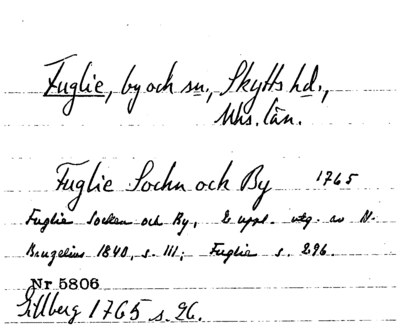 Fuglie, by och sn., Skytts hd.,
Mhs. län.
Fuglie Sochn och By 1765
Fuglie Socken och By, 2 uppl. utg. av N.
Bruzelius 1840, s. III; Fuglie s. 296.
Nr 5806
Gillberg 1765 s. 26.